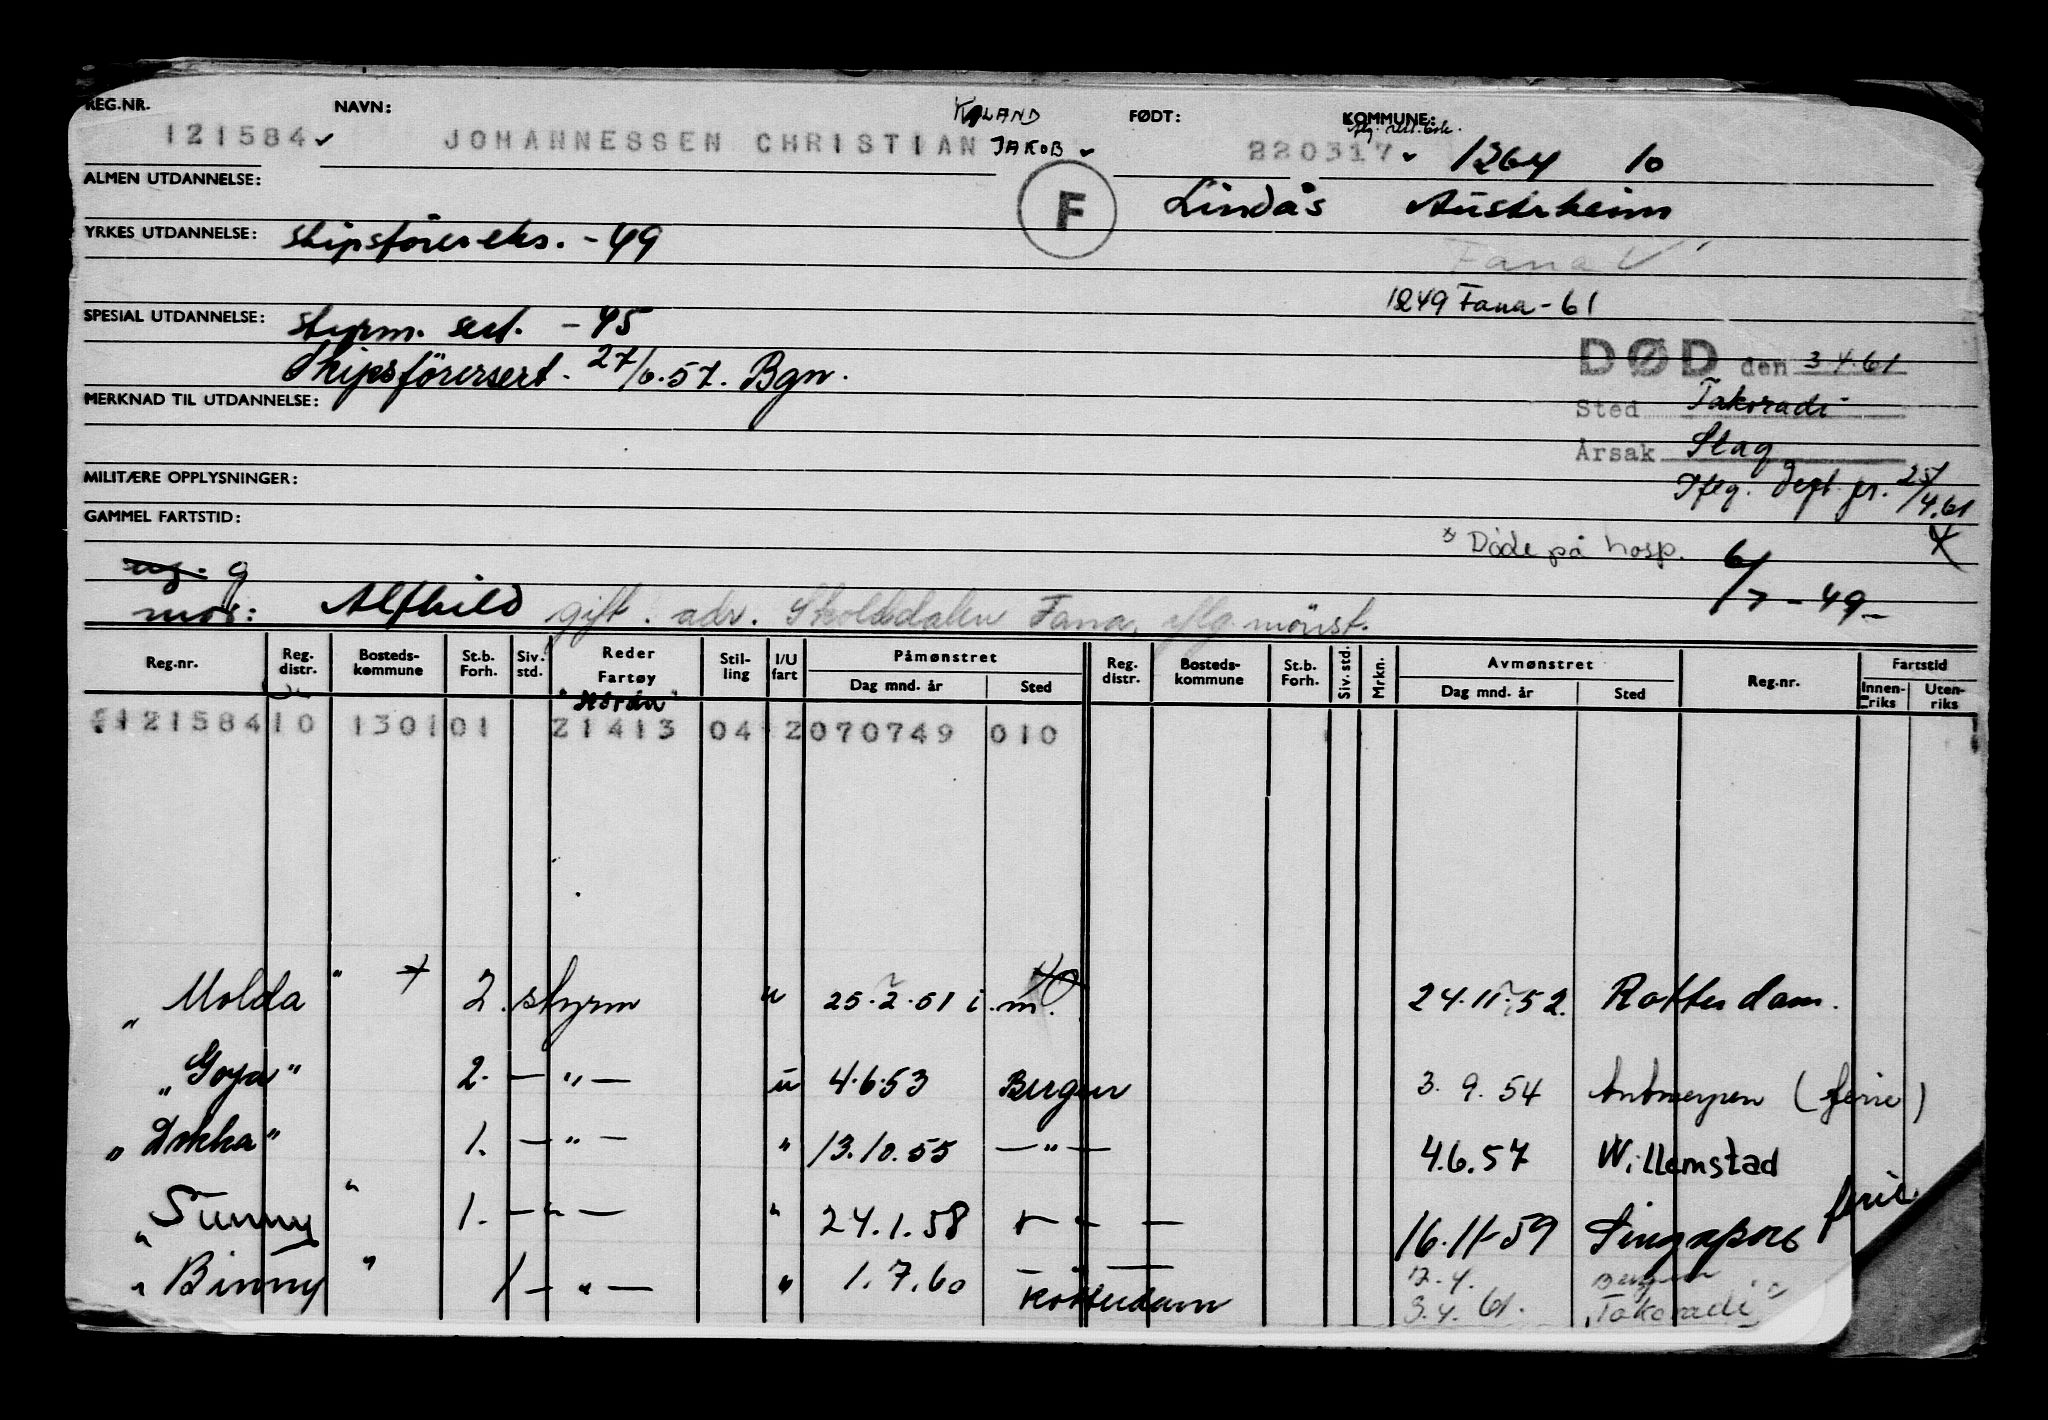 REG.NR. NAVN: KALAND FØDT: KOMMUNE:
121584 JOHANNESSEN CHRISTIAN JAKOB 220317 1264 10
ALMEN UTDANNELSE: F Lindås Austrheim
YRKES UTDANNELSE: skipsförereks. - 49 Fana
1249 Fana - 61
SPESIAL UTDANNELSE: styrm. sert. - 45
DØD den 3 4.61
Skipsförersert. 27/6.57. Bgn.
MERKNAD TIL UTDANNELSE:
Sted Takoradi
Årsak Slag
MILITÆRE OPPLYSNINGER: Iflg. dept. jr. 25/4.61
GAMMEL FARTSTID:
x Døde på hosp. x
ug. g 6/7 - 49 -
mor: Alfhild gift. adr. Skoltdalen Fana, iflg. mønst.
Reg.nr. Reg. distr. Bosteds- kommune St.b. Forh. Siv. std. Reder Fartøy Stil- ling I/U fart Påmønstret Dag mnd. år Sted Reg. distr. Bosteds- kommune St.b. Forh. Siv. std. Mrkn. Avmønstret Dag mnd. år Sted Reg.nr. Fartstid Innen- riks Uten- riks
"Horda"
121584 10 1301 01 21413 04 2 070749 010
"Molda" 2. styrm u 25.2.51 i.m. 24.11.52. Rotterdam.
"Goya" 2. — " — u 4.6.53 Bergen 3.9.54 Antwerpen (ferie)
"Dokka" 1. — " — " 13.10.55 — " — 4.6.57 Willemstad
"Sunny" 1. — " — " 24.1.58 — " — 16.11-59 Singapore ferie
"Binny" 1 — " — " 1.7.60 — " —
Rotterdam
12.4. Bergen
3.4.61. "Takoradi"